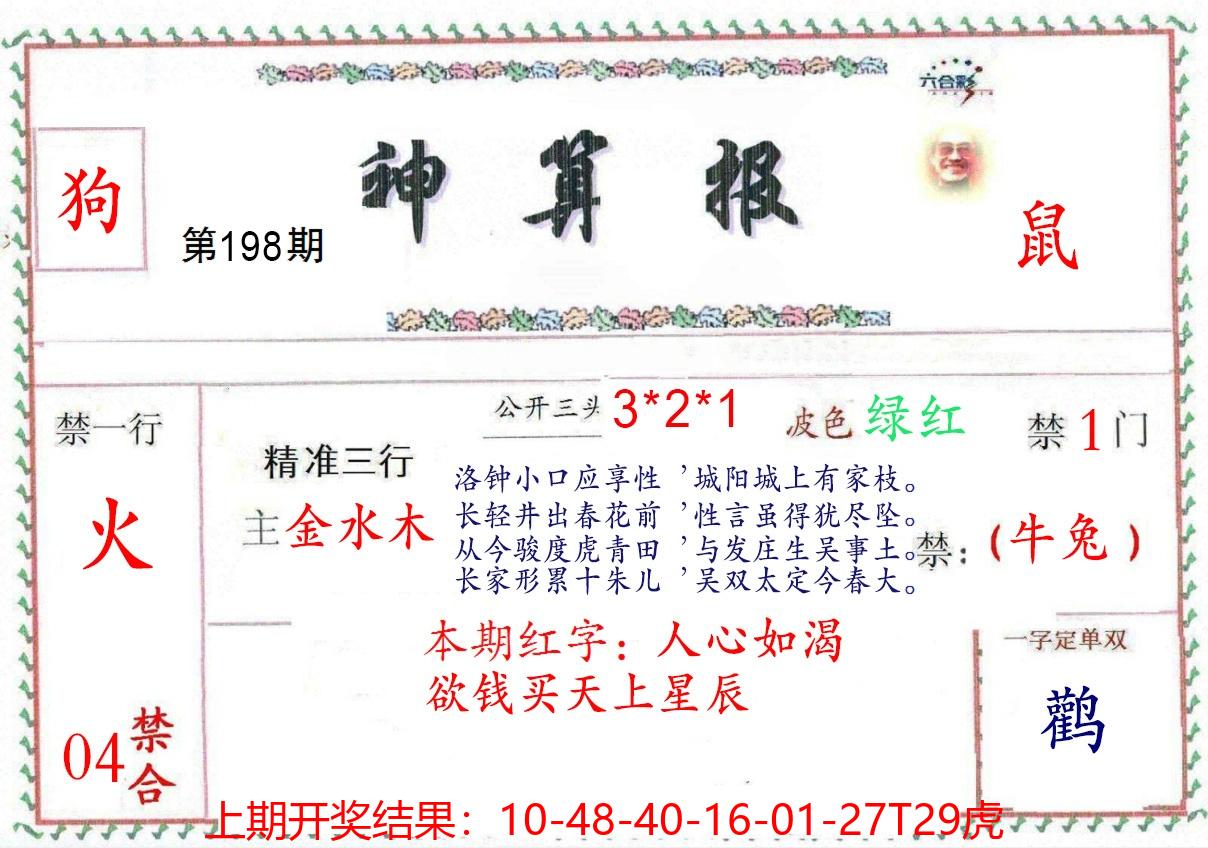 六合彩
神算报
狗
第198期
鼠
公开三头 3*2*1
波色 绿红
禁1门
禁一行
精准三行
火
主金水木
洛钟小口应享性 ’城阳城上有家枝。
长轻井出春花前 ’性言虽得犹尽坠。
从今骏度虎青田 ’与发庄生吴事土。
长家形累十朱儿 ’吴双太定今春大。
禁:(牛兔)
本期红字:人心如渴
欲钱买天上星辰
一字定单双
鹳
04禁合
上期开奖结果:10-48-40-16-01-27T29虎